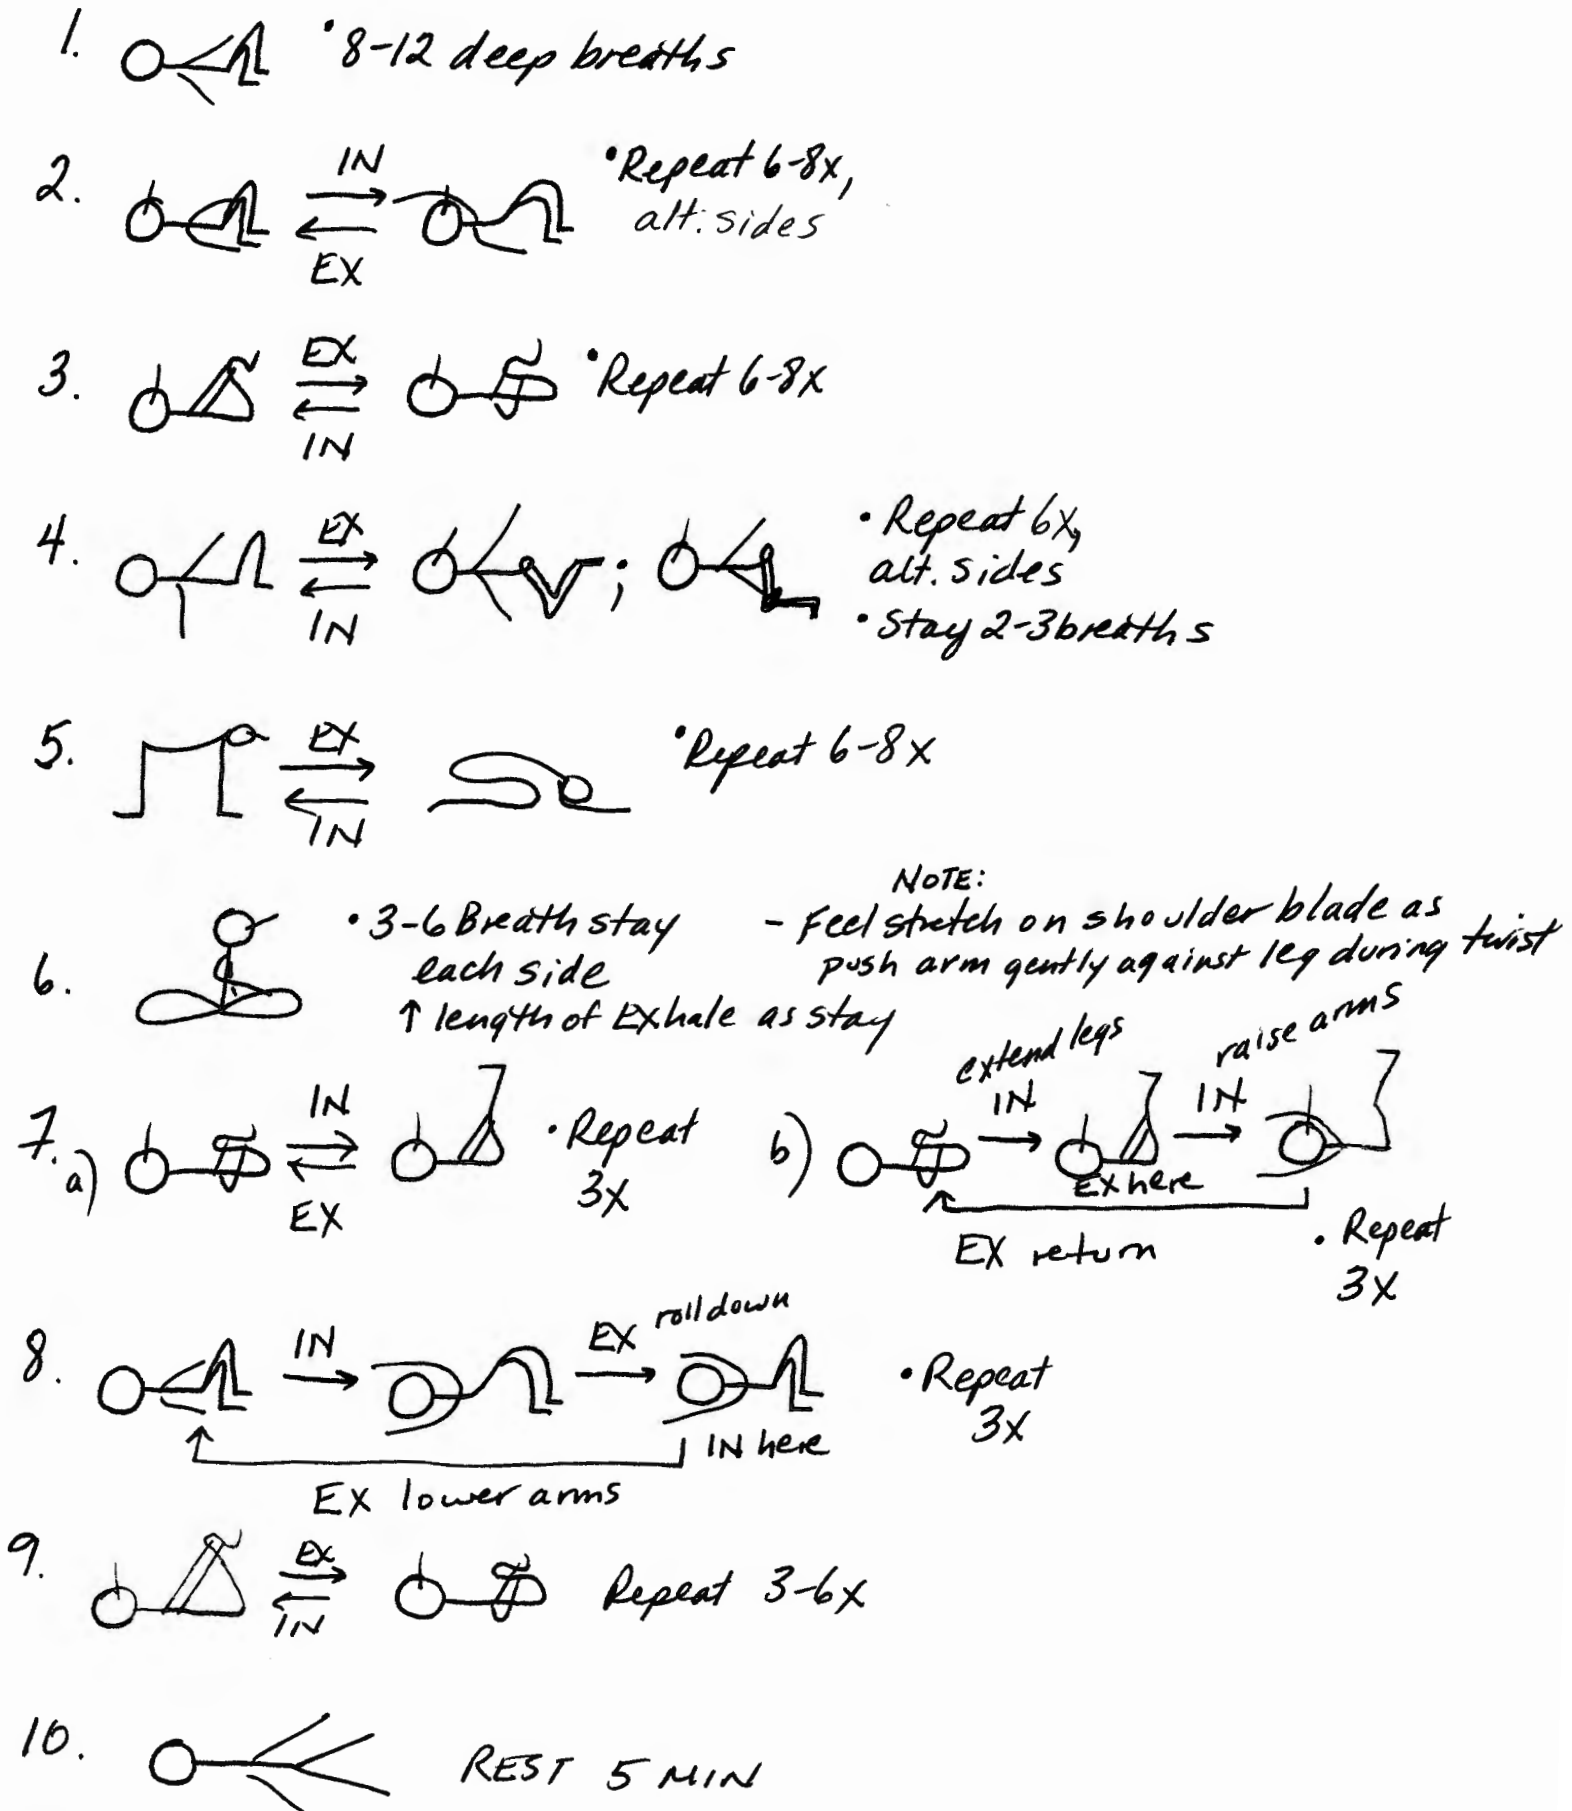 1. • 8-12 deep breaths
2. IN • Repeat 6-8x,
alt. sides
EX
3. EX • Repeat 6-8x
IN
4. EX • Repeat 6x,
alt. sides
IN • Stay 2-3 breaths
5. EX • Repeat 6-8x
IN
NOTE:
6. • 3-6 Breath stay
each side
↑ length of Exhale as stay
- Feel stretch on shoulder blade as
push arm gently against leg during twist
7. a) IN
EX
• Repeat
3x
b) extend legs
IN
raise arms
IN
EX here
EX return
• Repeat
3x
8. IN EX roll down
• Repeat
3x
IN here
EX lower arms
9. EX Repeat 3-6x
IN
10. REST 5 MIN